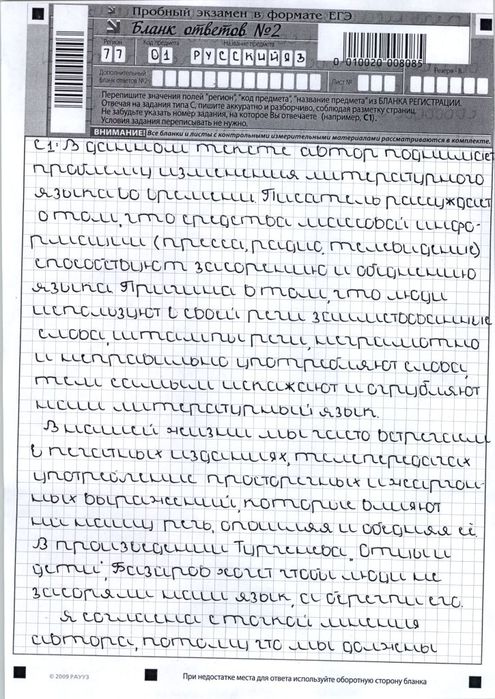 Пробный экзамен в формате ЕГЭ
Бланк ответов №2
Регион Код предмета Название предмета Резерв - 8
77 01 РУССКИЙ ЯЗ
0 010020 008085
Дополнительный бланк ответов №2 Лист №
Перепишите значения полей "регион", "код предмета", "название предмета" из БЛАНКА РЕГИСТРАЦИИ.
Отвечая на задания типа С, пишите аккуратно и разборчиво, соблюдая разметку страниц.
Не забудьте указать номер задания, на которое Вы отвечаете (например, С1).
Условия задания переписывать не нужно.
ВНИМАНИЕ! Все бланки и листы с контрольными измерительными материалами рассматриваются в комплекте.
С1. В данном тексте автор поднимает
проблему изменения литературного
языка во времени. Писатель рассуждает
о том, что средства массовой инфо-
рмации (пресса, радио, телевидение)
способствуют засорению и обеднению
языка. Причина в том, что люди
используют в своей речи заимствованные
слова, штампы речи, неграмотно
и неправильно употребляют слова,
тем самым искажают и огрубляют
наш литературный язык.
В нашей жизни мы часто встречаем
в печатных изданиях, телепередачах
употребление просторечных и жаргон-
ных выражений, которые влияют
на нашу речь, опошляя и обедняя её.
В произведении Тургенева "Отцы и
дети", Базаров хочет чтобы люди не
засоряли наш язык, а берегли его.
Я согласна с точкой мнения
автора, потому что мы должны
© 2009 РАУУЗ При недостатке места для ответа используйте оборотную сторону бланка